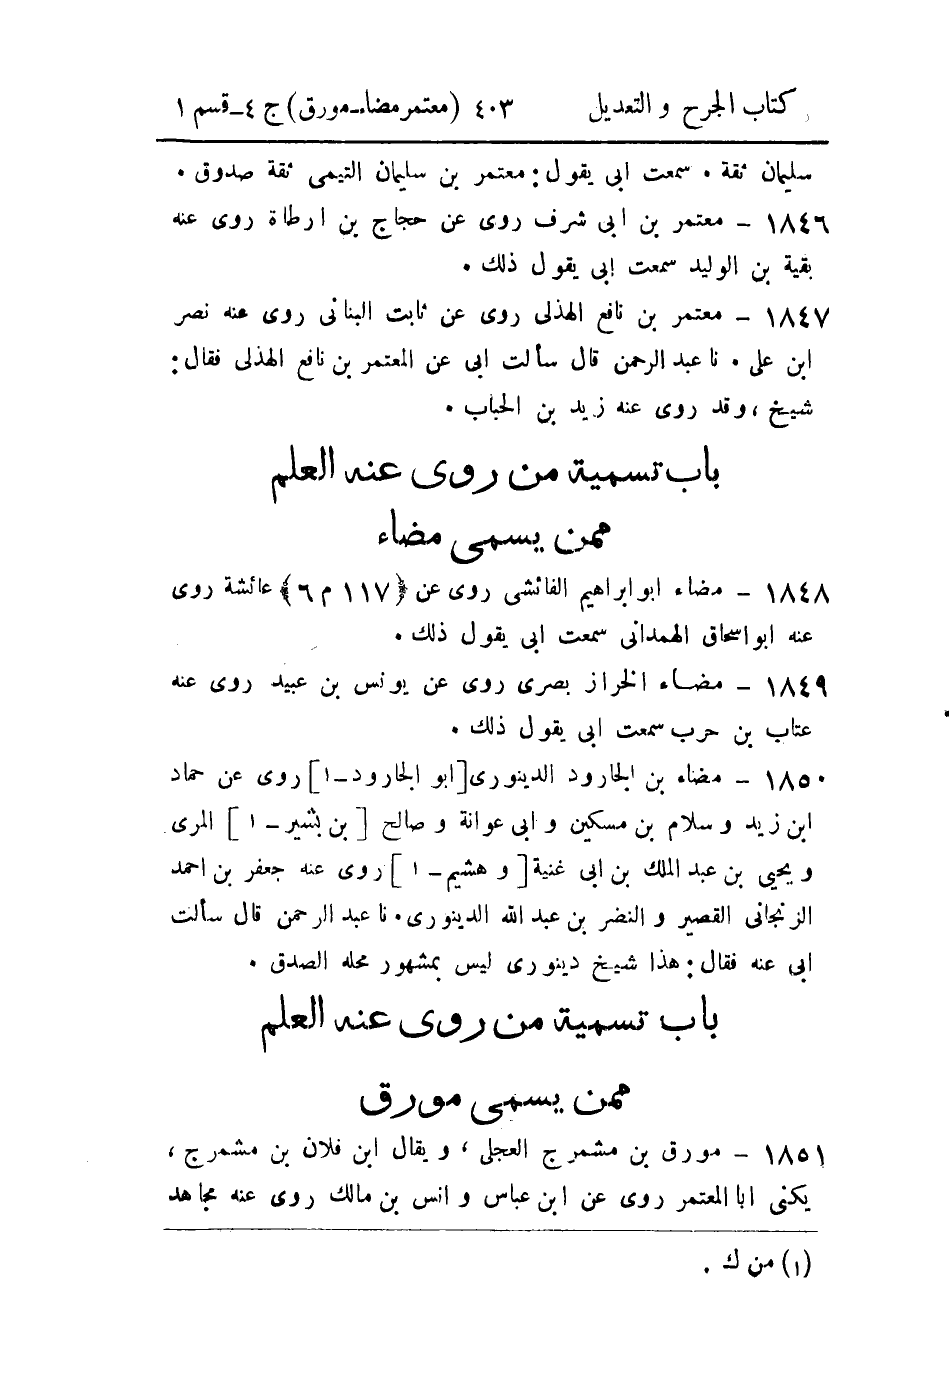 كتاب الجرح و التعديل ٤٠٣ (معتمر مضاء-مورق) ج ٤-قسم ١
سليمان ثقة . سمعت ابى يقول: معتمر بن سليمان التيمى ثقة صدوق .
١٨٤٦ - معتمر بن ابى شرف روى عن حجاج بن ارطاة روى عنه
بقية بن الوليد سمعت ابى يقول ذلك .
١٨٤٧ - معتمر بن نافع الهذلى روى عن ثابت البنانى روى عنه نصر
ابن على . نا عبد الرحمن قال سألت ابى عن المعتمر بن نافع الهذلى فقال:
شيخ ، وقد روى عنه زيد بن الحباب .
باب تسمية من روى عنه العلم
ممن يسمى مضاء
١٨٤٨ - مضاء ابو ابراهيم الفائشى روى عن {١١٧ م ٦} عائشة روى
عنه ابو اسحاق الهمدانى سمعت ابى يقول ذلك .
١٨٤٩ - مضاء الخراز بصرى روى عن يونس بن عبيد روى عنه
عتاب بن حرب سمعت ابى يقول ذلك .
١٨٥٠ - مضاء بن الجارود الدينورى [ابو الجارود-١] روى عن حماد
ابن زيد و سلام بن مسكين و ابى عوانة و صالح [بن بشير - ١] المرى
و يحيى بن عبد الملك بن ابى غنية [و هشيم - ١] روى عنه جعفر بن احمد
الزنجانى القصير و النضر بن عبد الله الدينورى . نا عبد الرحمن قال سألت
ابى عنه فقال: هذا شيخ دينورى ليس بمشهور محله الصدق .
باب تسمية من روى عنه العلم
ممن يسمى مورق
١٨٥١ - مورق بن مشمرج العجلى ، و يقال ابن فلان بن مشمرج ،
يكنى ابا المعتمر روى عن ابن عباس و انس بن مالك روى عنه مجاهد
(١) من ك .